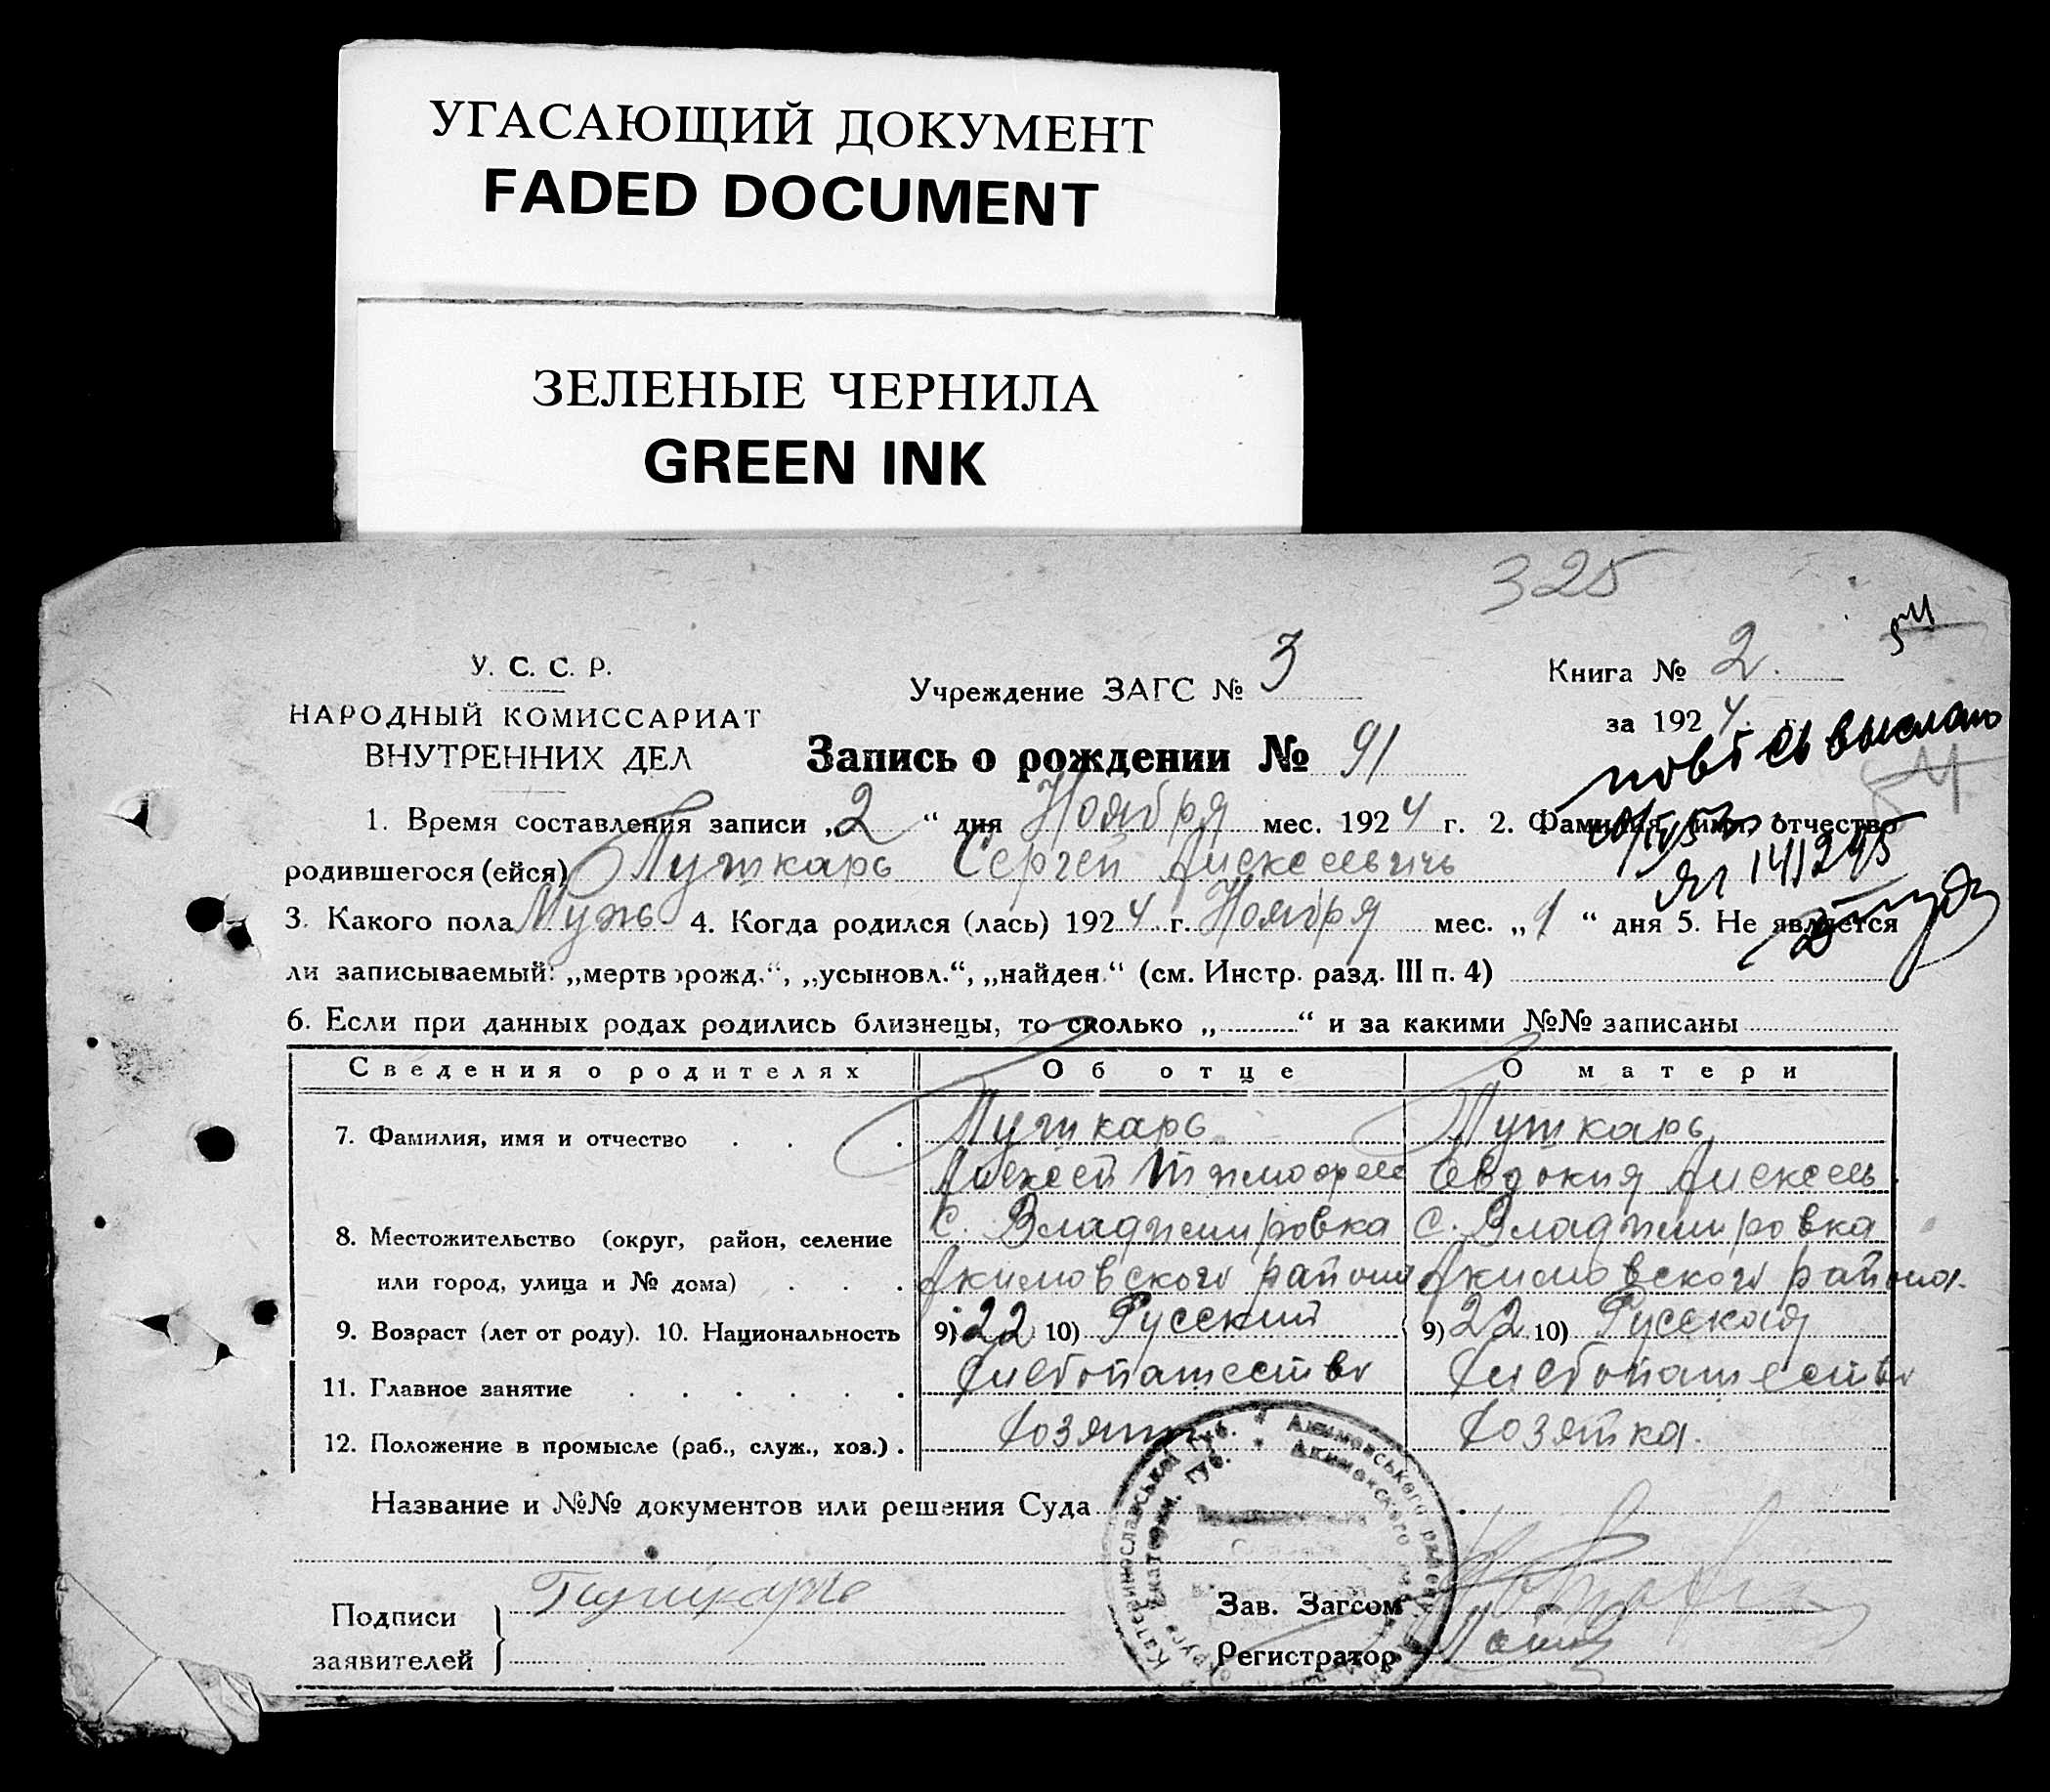 УГАСАЮЩИЙ ДОКУМЕНТ
FADED DOCUMENT
ЗЕЛЕНЫЕ ЧЕРНИЛА
GREEN INK
325
54
У. С. С. Р.
НАРОДНЫЙ КОМИССАРИАТ
ВНУТРЕННИХ ДЕЛ
Учреждение ЗАГС № 3
Книга № 2.
за 1924 г.
Запись о рождении № 91
выслан
54
1. Время составления записи „2“ дня Ноября мес. 1924 г. 2. Фамилия, имя, отчество
родившегося (ейся) Пушкарь Сергей Алексеевичь
3. Какого пола Мужь 4. Когда родился (лась) 1924 г. Ноября мес. „1“ дня 5. Не является
ли записываемый: „мертворожд.“, „усыновл.“, „найден.“ (см. Инстр. разд. III п. 4)
6. Если при данных родах родились близнецы, то сколько „..........“ и за какими №№ записаны
Сведения о родителях Об отце О матери
7. Фамилия, имя и отчество . . . Пушкарь Пушкарь
Алексей Тимофее Евдокия Алексеев
с. Владимировка с. Владимировка
8. Местожительство (округ, район, селение
или город, улица и № дома) . . . Акимовского района Акимовского района.
9. Возраст (лет от роду). 10. Национальность 9) 22 10) Русский 9) 22 10) Русская
11. Главное занятие . . . . . . Хлебопашество Хлебопашество
12. Положение в промысле (раб., служ., хоз.) . Хозяин Хозяйка.
Название и №№ документов или решения Суда
Катеринославської Губ. * Акимовського району
Екатерин. Губ. * Акимовского
Подписи
заявителей
Пушкарь
Зав. Загсом
Регистратор